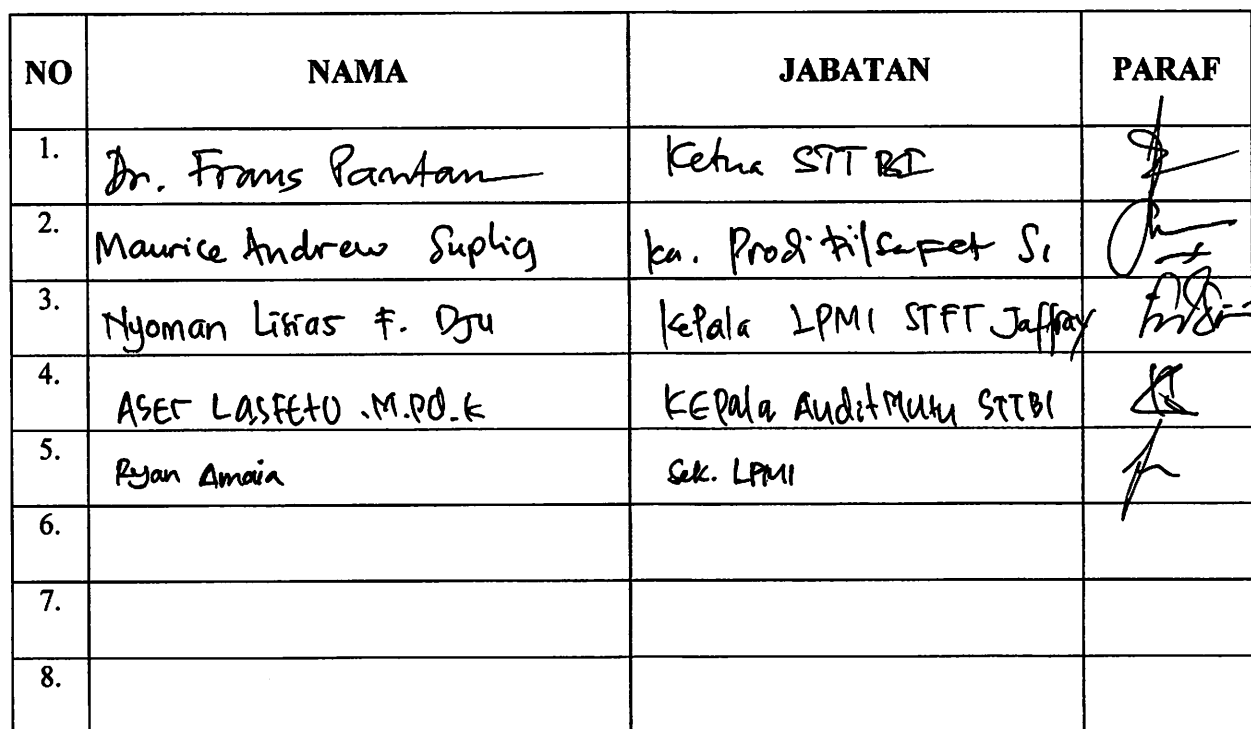 NO NAMA JABATAN PARAF
1. Dr. Frans Pantan Ketua STT BI
2. Maurice Andrew Suplig Ka. Prodi Filsafet S1
3. Nyoman Lisias F. Dju Kepala LPMI STFT Jaffray
4. ASER LASFETO .M.PD.K KEPala Audit Mutu STTBI
5. Ryan Amaia Sek. LPMI
6.
7.
8.